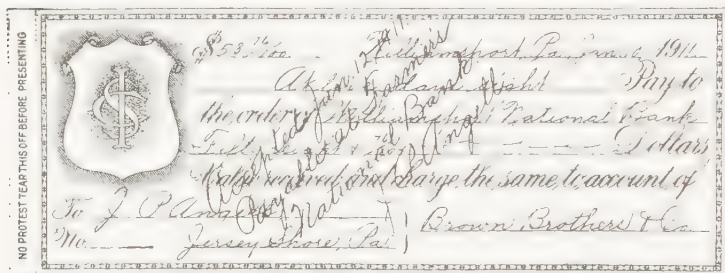 NO PROTEST TEAR THIS OFF BEFORE PRESENTING
$53 76/100 Williamsport, Pa. Jan. 6, 1911
At sight Pay to
the order of Williamsport National Bank
Fifty & 76/100 Dollars
Value received and charge the same to account of
To J. P. Angell
No. Jersey Shore, Pa. Brown Brothers & Co.
Accepted Jan. 12, 1911
Payable at Farmers
National Bank
J. P. Angell